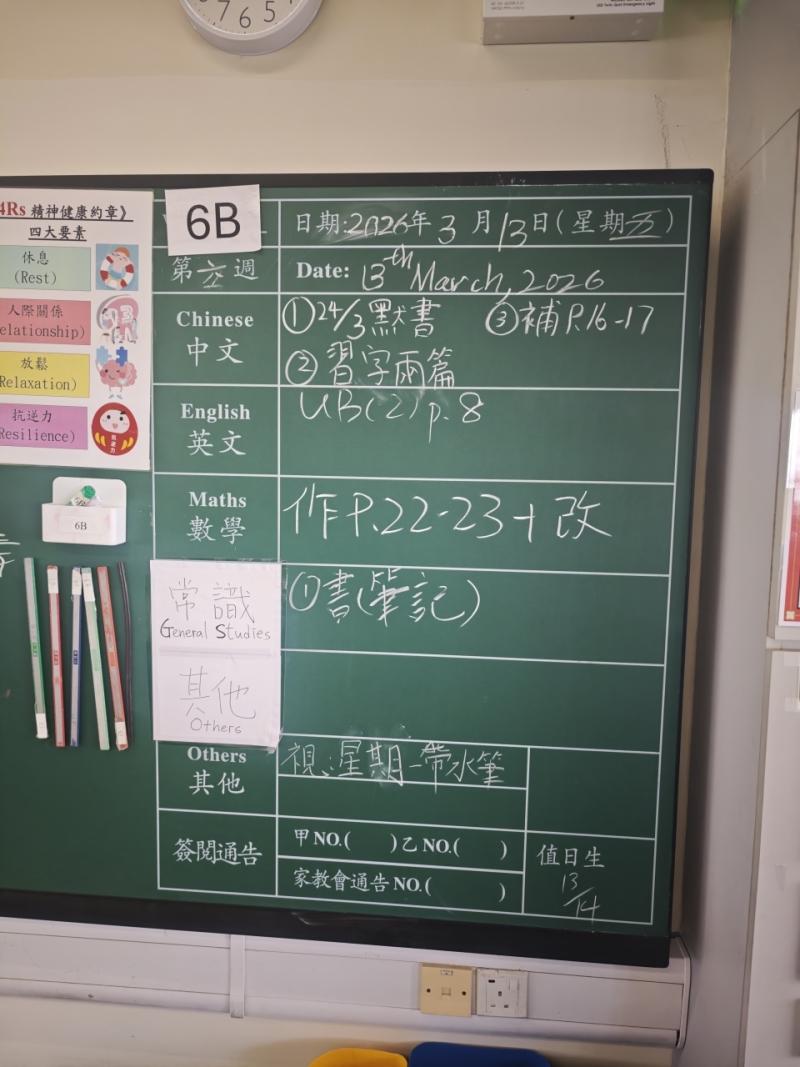 7 6 5
4Rs 精神健康約章》
四大要素
休息
(Rest)
人際關係
elationship)
放鬆
Relaxation)
抗逆力
Resilience)
6B
6B
日期:2026年3月13日(星期五)
第六週
Date: 13th March, 2026
Chinese
中文
①24/3默書 ③補P.16-17
②習字兩篇
English
英文
UB(2) p.8
Maths
數學
作P.22-23+改
常識
General Studies
①書(筆記)
其他
Others
Others
其他
視:星期一帶水筆
簽閱通告
甲NO.( )乙NO.( )
家教會通告NO.( )
值日生
13/14